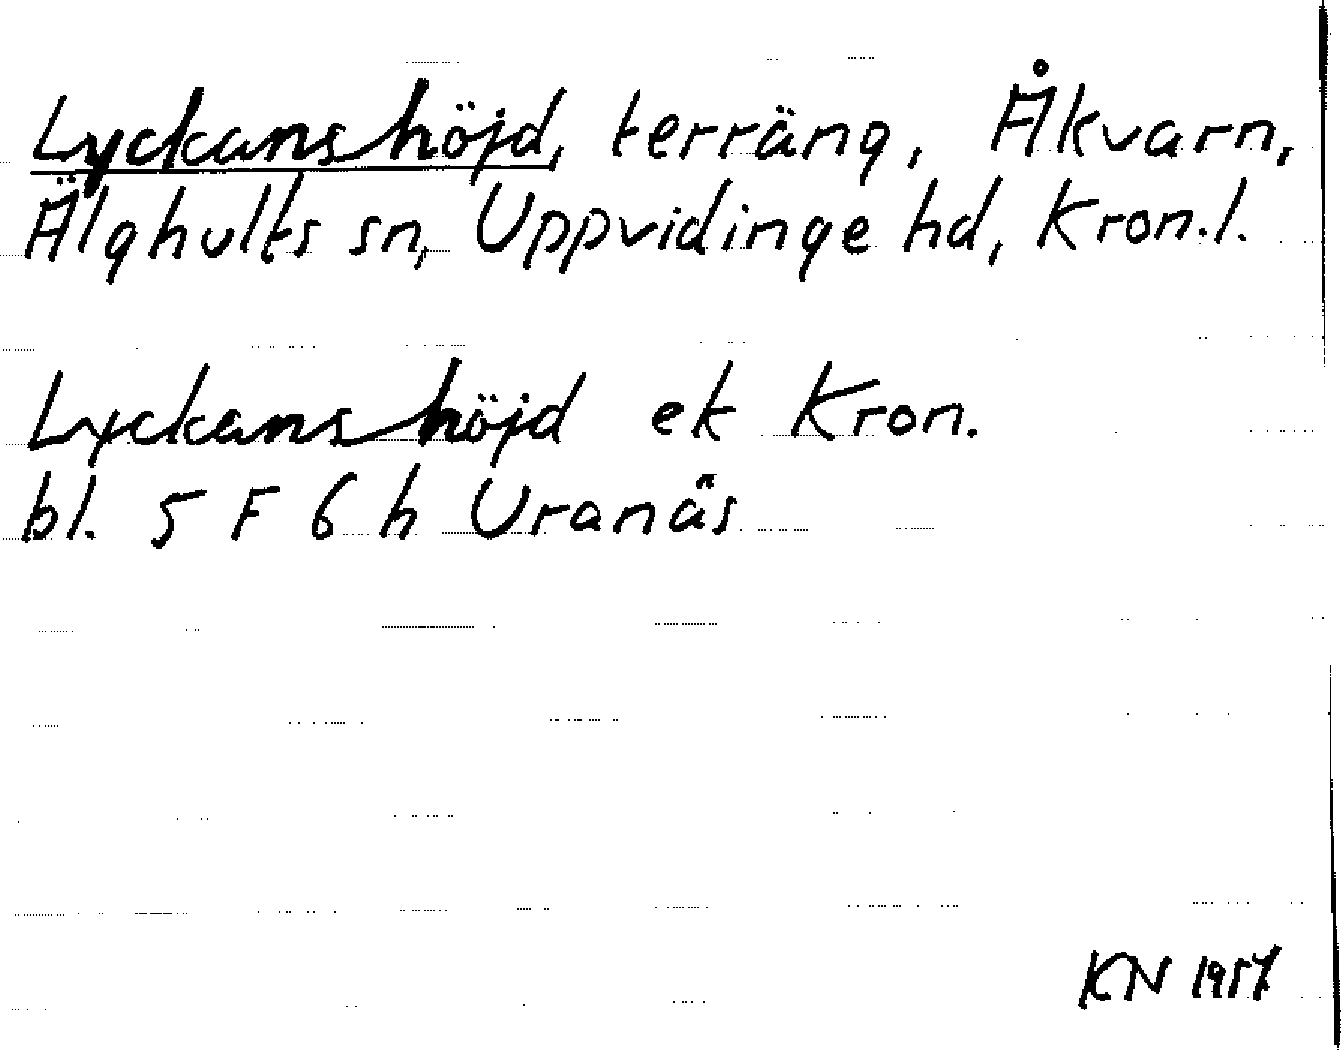 Lyckanshöjd, terräng, Åkvarn,
Älghults sn, Uppvidinge hd, Kron.l.
Lyckanshöjd ek Kron.
bl. 5 F 6 h Uranäs
KN 1957